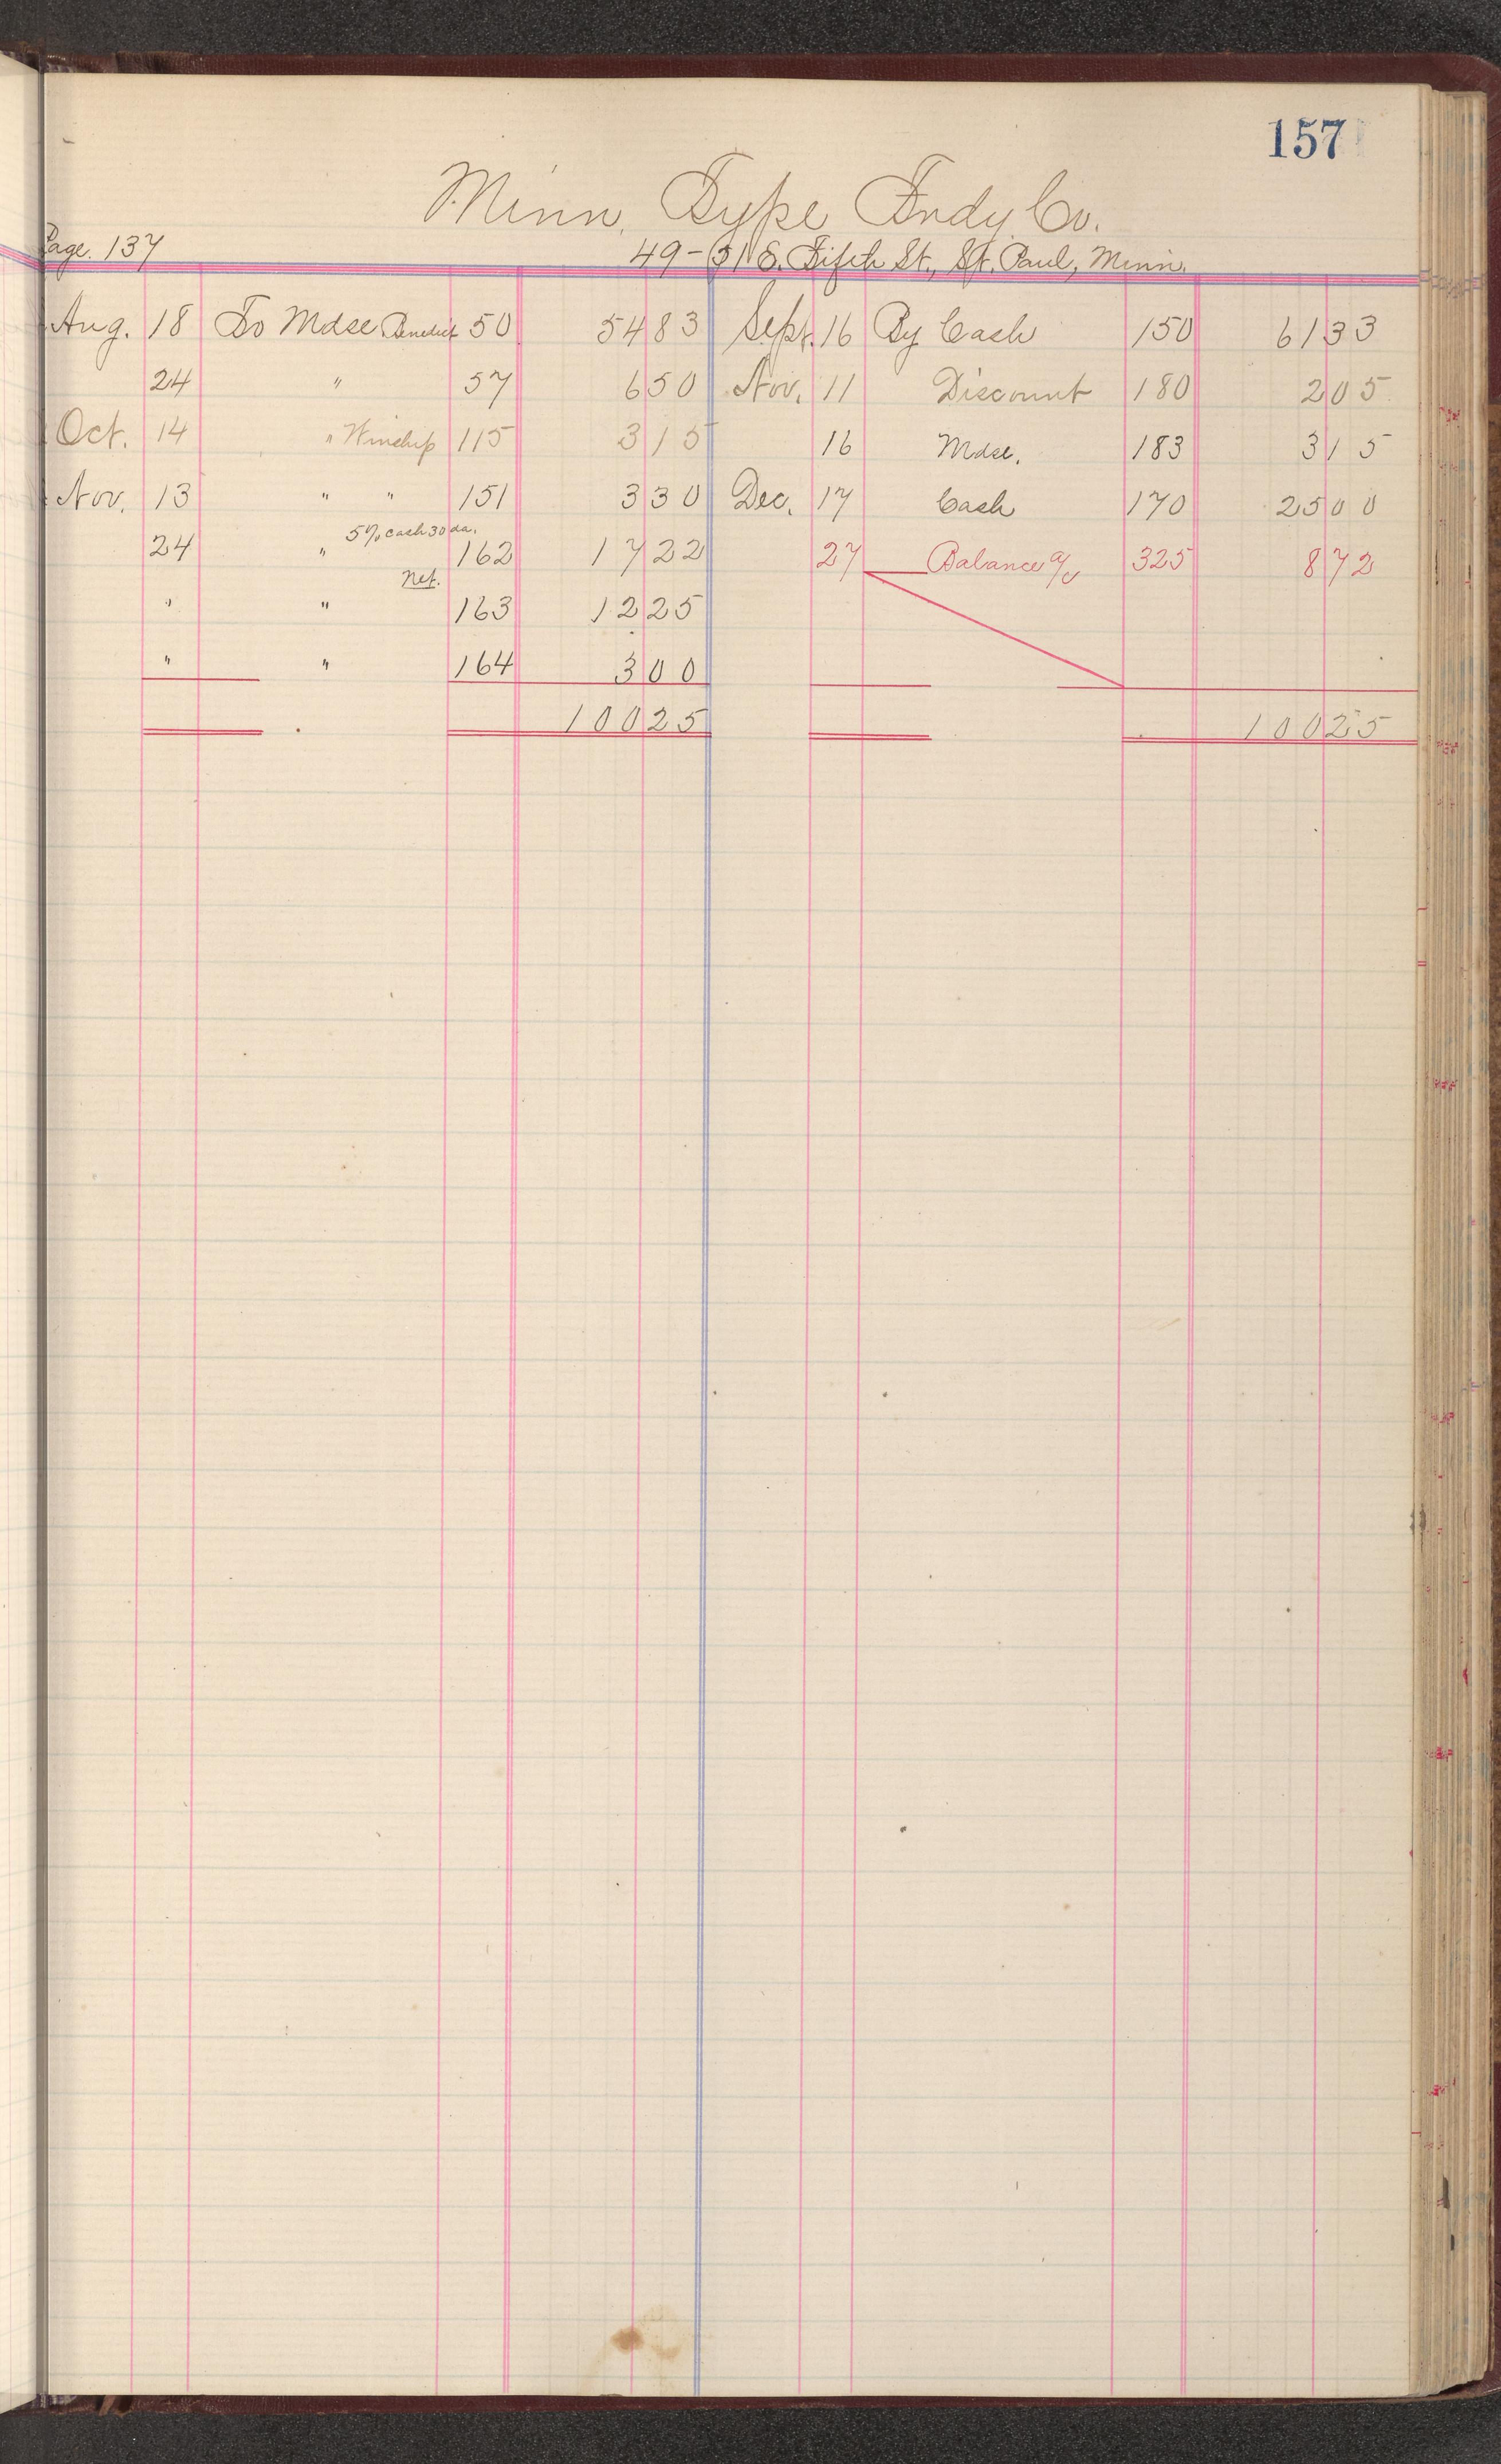 157
Minn. Type Fndy Co.
Page. 137 49-51 E. Fifth St., St. Paul, Minn.
Aug. 18 To Mdse Benedict 50 54 83 Sept. 16 By Cash 150 61 33
24 " 57 6 50 Nov. 11 Discount 180 2 05
Oct. 14 " Winship 115 3 15 16 Mdse. 183 3 15
Nov. 13 " " 151 3 30 Dec. 17 Cash 170 25 00
24 " 5% cash 30 da. 162 17 22 27 Balance a/c 325 8 72
" " Net. 163 12 25
" " 164 3 00
100 25 100 25